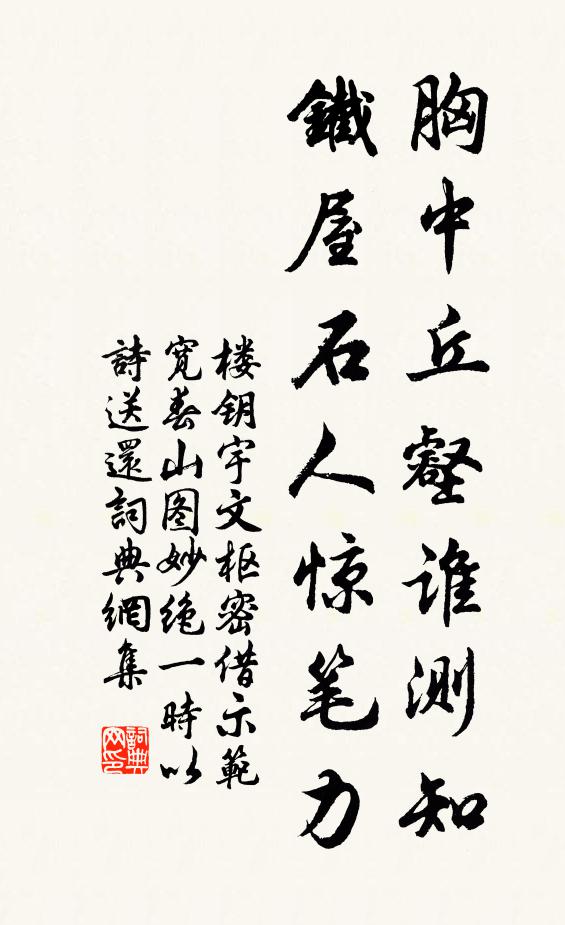 胸中丘壑谁测知
鐵屋石人惊笔力
楼钥宇文枢密借示範
宽春山图妙绝一時以
詩送還詞典網集
詞典
网印